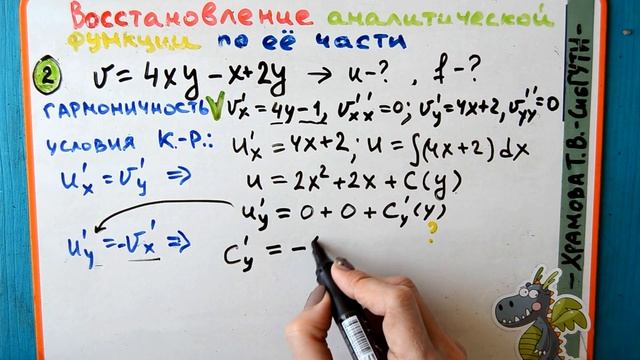 Восстановление аналитической
функции по её части
2 v = 4xy - x + 2y → u - ? , f - ?
ГАРМОНИЧНОСТЬ √ v'x = 4y - 1, v''xx = 0; v'y = 4x + 2, v''yy = 0
условия К.-Р.: u'x = 4x + 2; u = ∫(4x + 2) dx
u'x = v'y ⇒ u = 2x² + 2x + C(y)
u'y = 0 + 0 + C'y(y)
?
u'y = -v'x ⇒ C'y = -
- ХРАМОВА Т.В. - СибГУТИ -